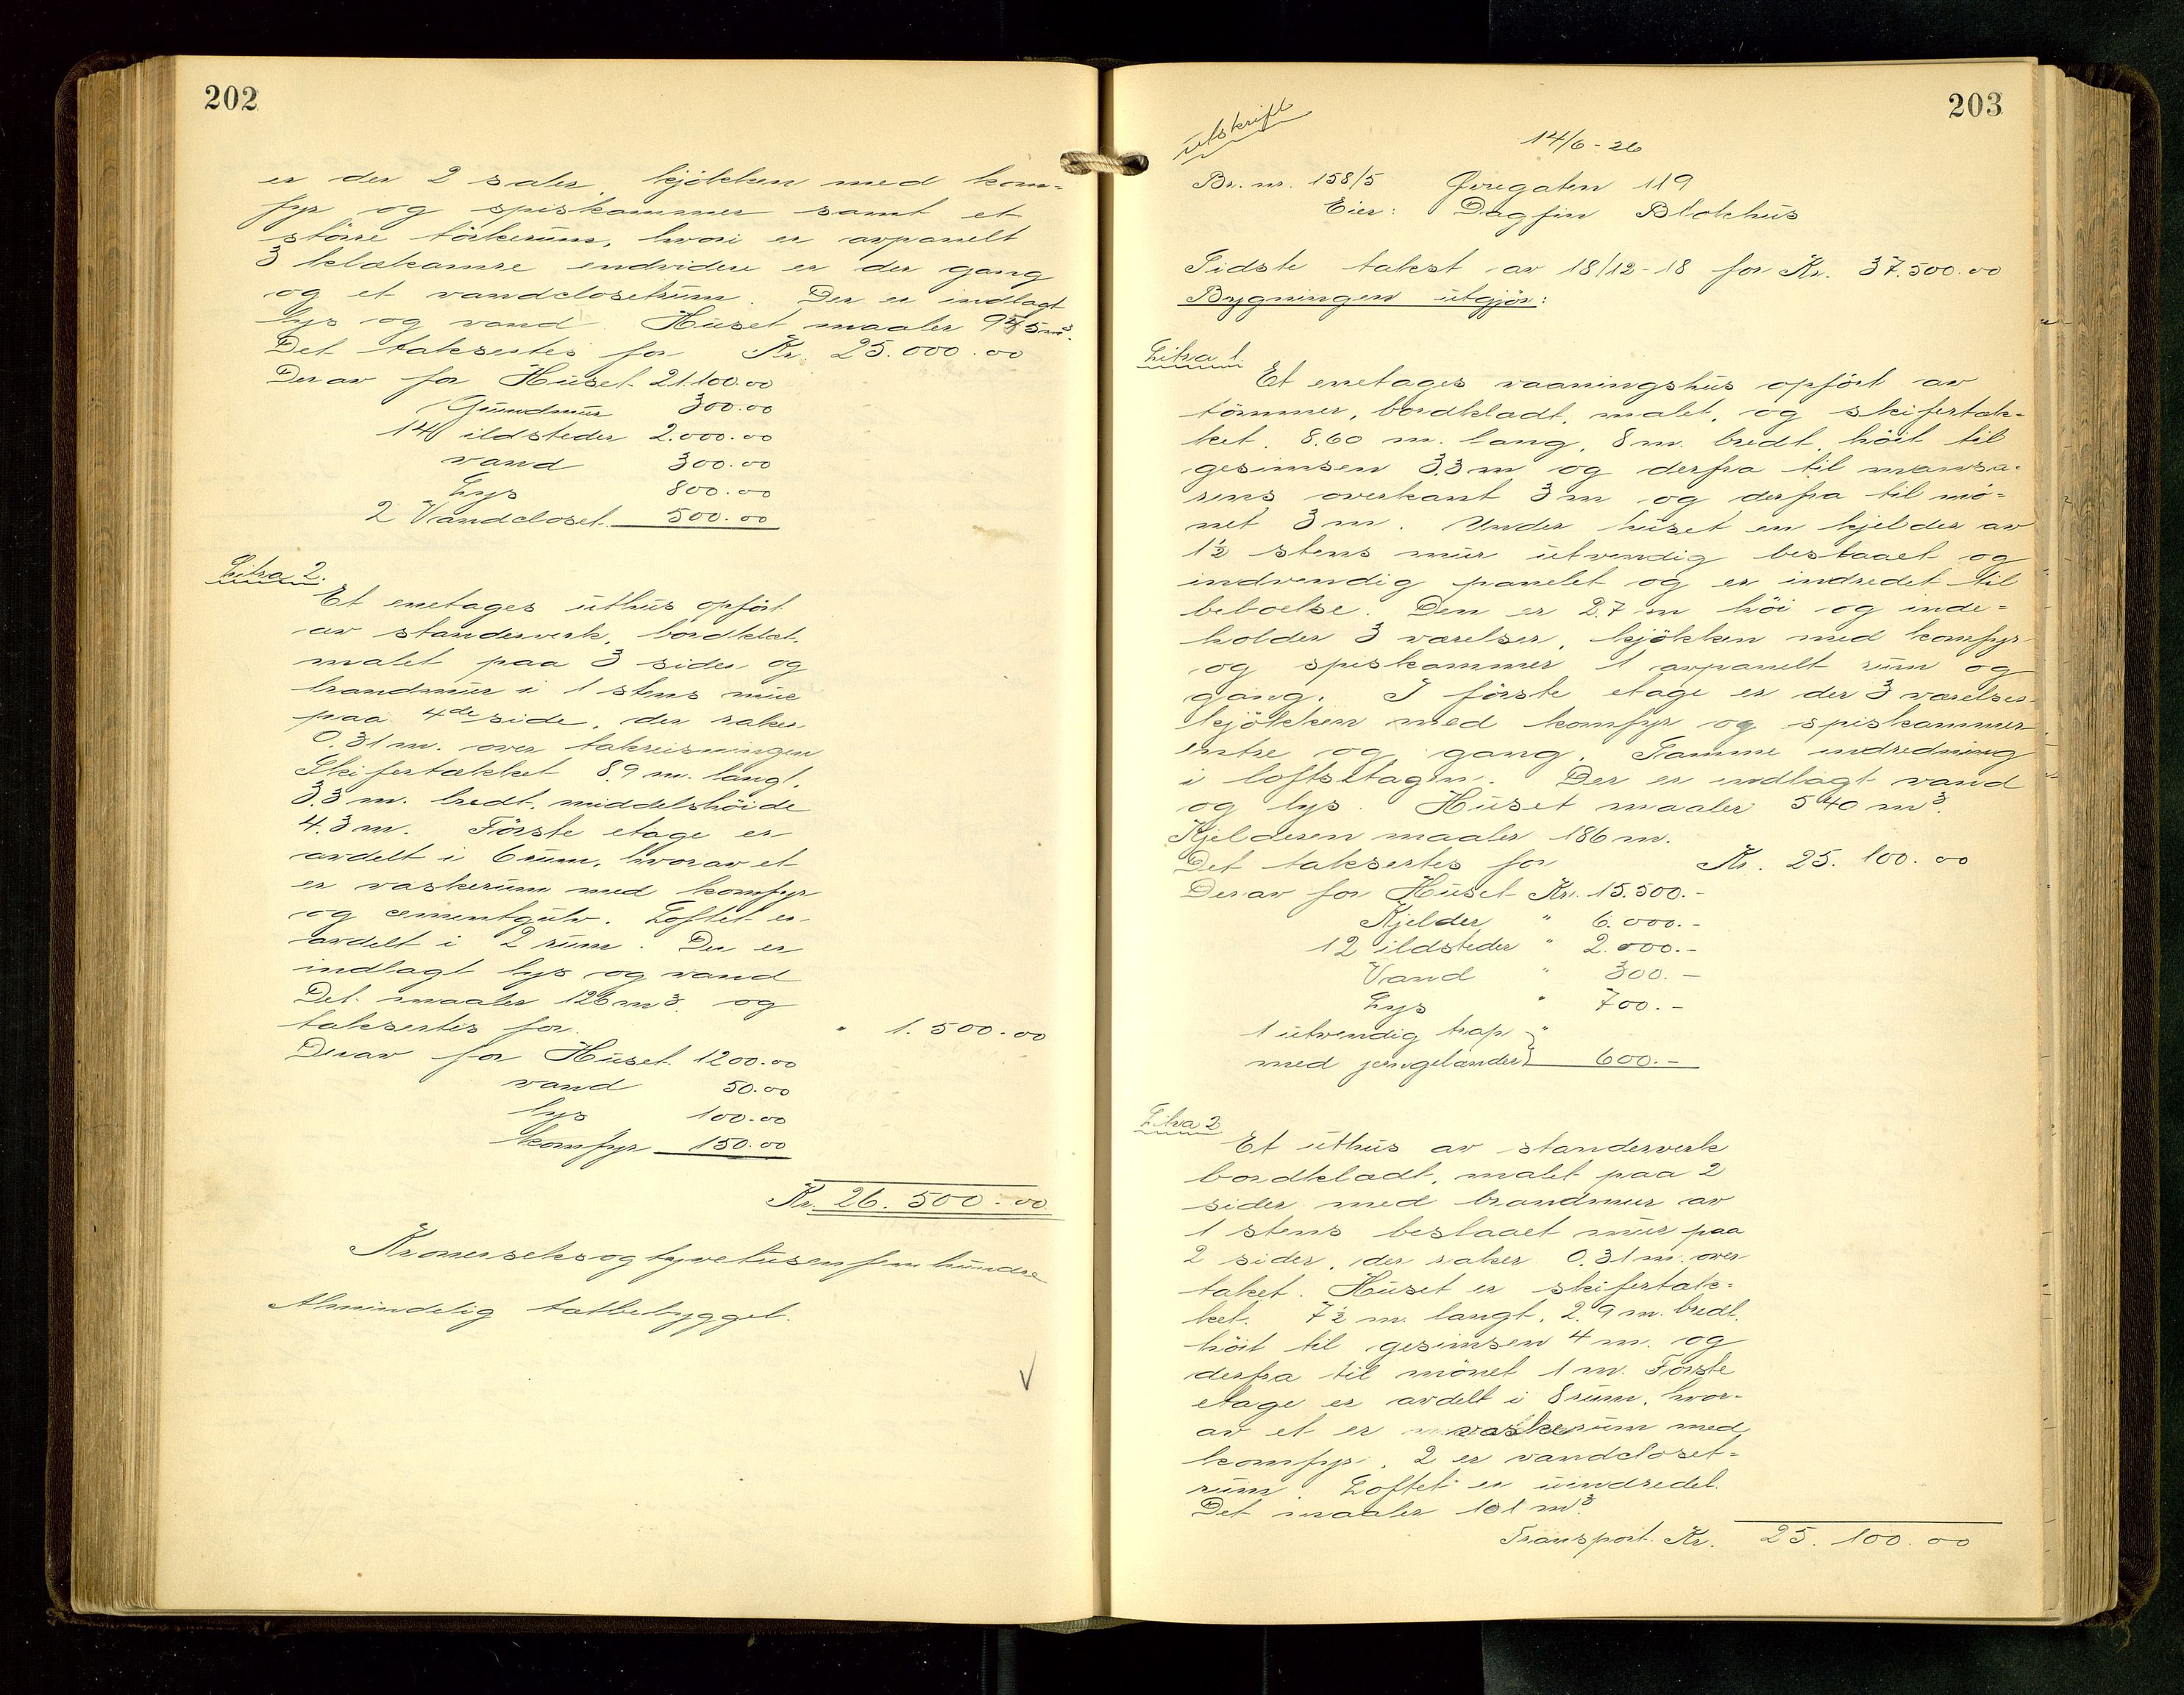 202
er der 2 saler, kjökken med kom-
fyr og spiskammer samt et
större törkerum, hvori er avpanelt
3 klækamre endvidere er der gang
og et vandclosetrum. Der er indlagt
lys og vand. Huset maaler 945 m³.
Det taksertes for Kr. 25.000.00
Derav for Huset 21.100.00
Grundmur 300.00
14 ildsteder 2.000.00
vand 300.00
Lys 800.00
2 Vandcloset 500.00
Litra 2.
Et enetages uthus opfört
av standerverk, bordklæt.
malet paa 3 sider og
brandmur i 1 stens mur
paa 4de side, der raker
0.31 m. over takreisningen
Skifertækket 8.9 m. langt,
3.3 m. bredt, middelshöide
4.3 m. Förste etage er
avdelt i 6 rum, hvorav et
er vaskerum med komfyr
og cementgulv. Loftet er
avdelt i 2 rum. Der er
indlagt lys og vand
Det maaler 126 m3. og
taksertes for " 1.500.00
Derav for Huset 1200.00
vand 50.00
lys 100.00
komfyr 150.00
Kr. 26.500.00
Kroner seks og tyvetusen fem hundre
Almindelig tætbebygget.
203
Utskrift
14/6-26
Br. nr. 158/5 Øvregaten 119
Eier: Dagfin Blokhus
Sidste takst av 18/12-18 for Kr. 37.500.00
Bygningen utgjör:
Litra 1.
Et enetages vaaningshus opfört av
tömmer, bordklædt, malet, og skifertæk-
ket. 8.60 m. lang, 8 m. bredt, höit til
gesimsen 3.3 m og derfra til mansa-
rens overkant 3 m og derfra til mö-
net 3 m. Under huset en kjelder av
1½ stens mur utvendig beslaaet og
indvendig panelet og er indredet til
beboelse. Den er 2.7 m höi og inde-
holder 3 værelser, kjökken med komfyr
og spiskammer 1 avpanelt rum og
gang. I förste etage er der 3 værelser
kjökken med komfyr og spiskammer,
entre og gang. Samme indredning
i loftsetagen. Der er indlagt vand
og lys. Huset maaler 540 m3.
Kjelderen maaler 186 m.
Det taksertes for Kr. 25.100.00
Derav for Huset Kr. 15.500.-
Kjelder " 6.000.-
12 ildsteder " 2.000.-
Vand " 300.-
Lys " 700.-
1 utvendig trap "
med jerngelænder 600.-
Litra 2
Et uthus av standerverk
bordklædt, malet paa 2
sider med brandmur av
1 stens beslaaet mur paa
2 sider, der raker 0.31 m. over
taket. Huset er skifertæk-
ket. 7½ m. langt, 2.9 m. bredt.
höit til gesimsen 4 m. og
derfra til mönet 1 m. Förste
etage er avdelt i 8 rum, hvor-
av et er vaskerum med
komfyr, 2 er vandcloset-
rum. Loftet er uindredet.
Det maaler 101 m3.
Transport Kr. 25.100.00